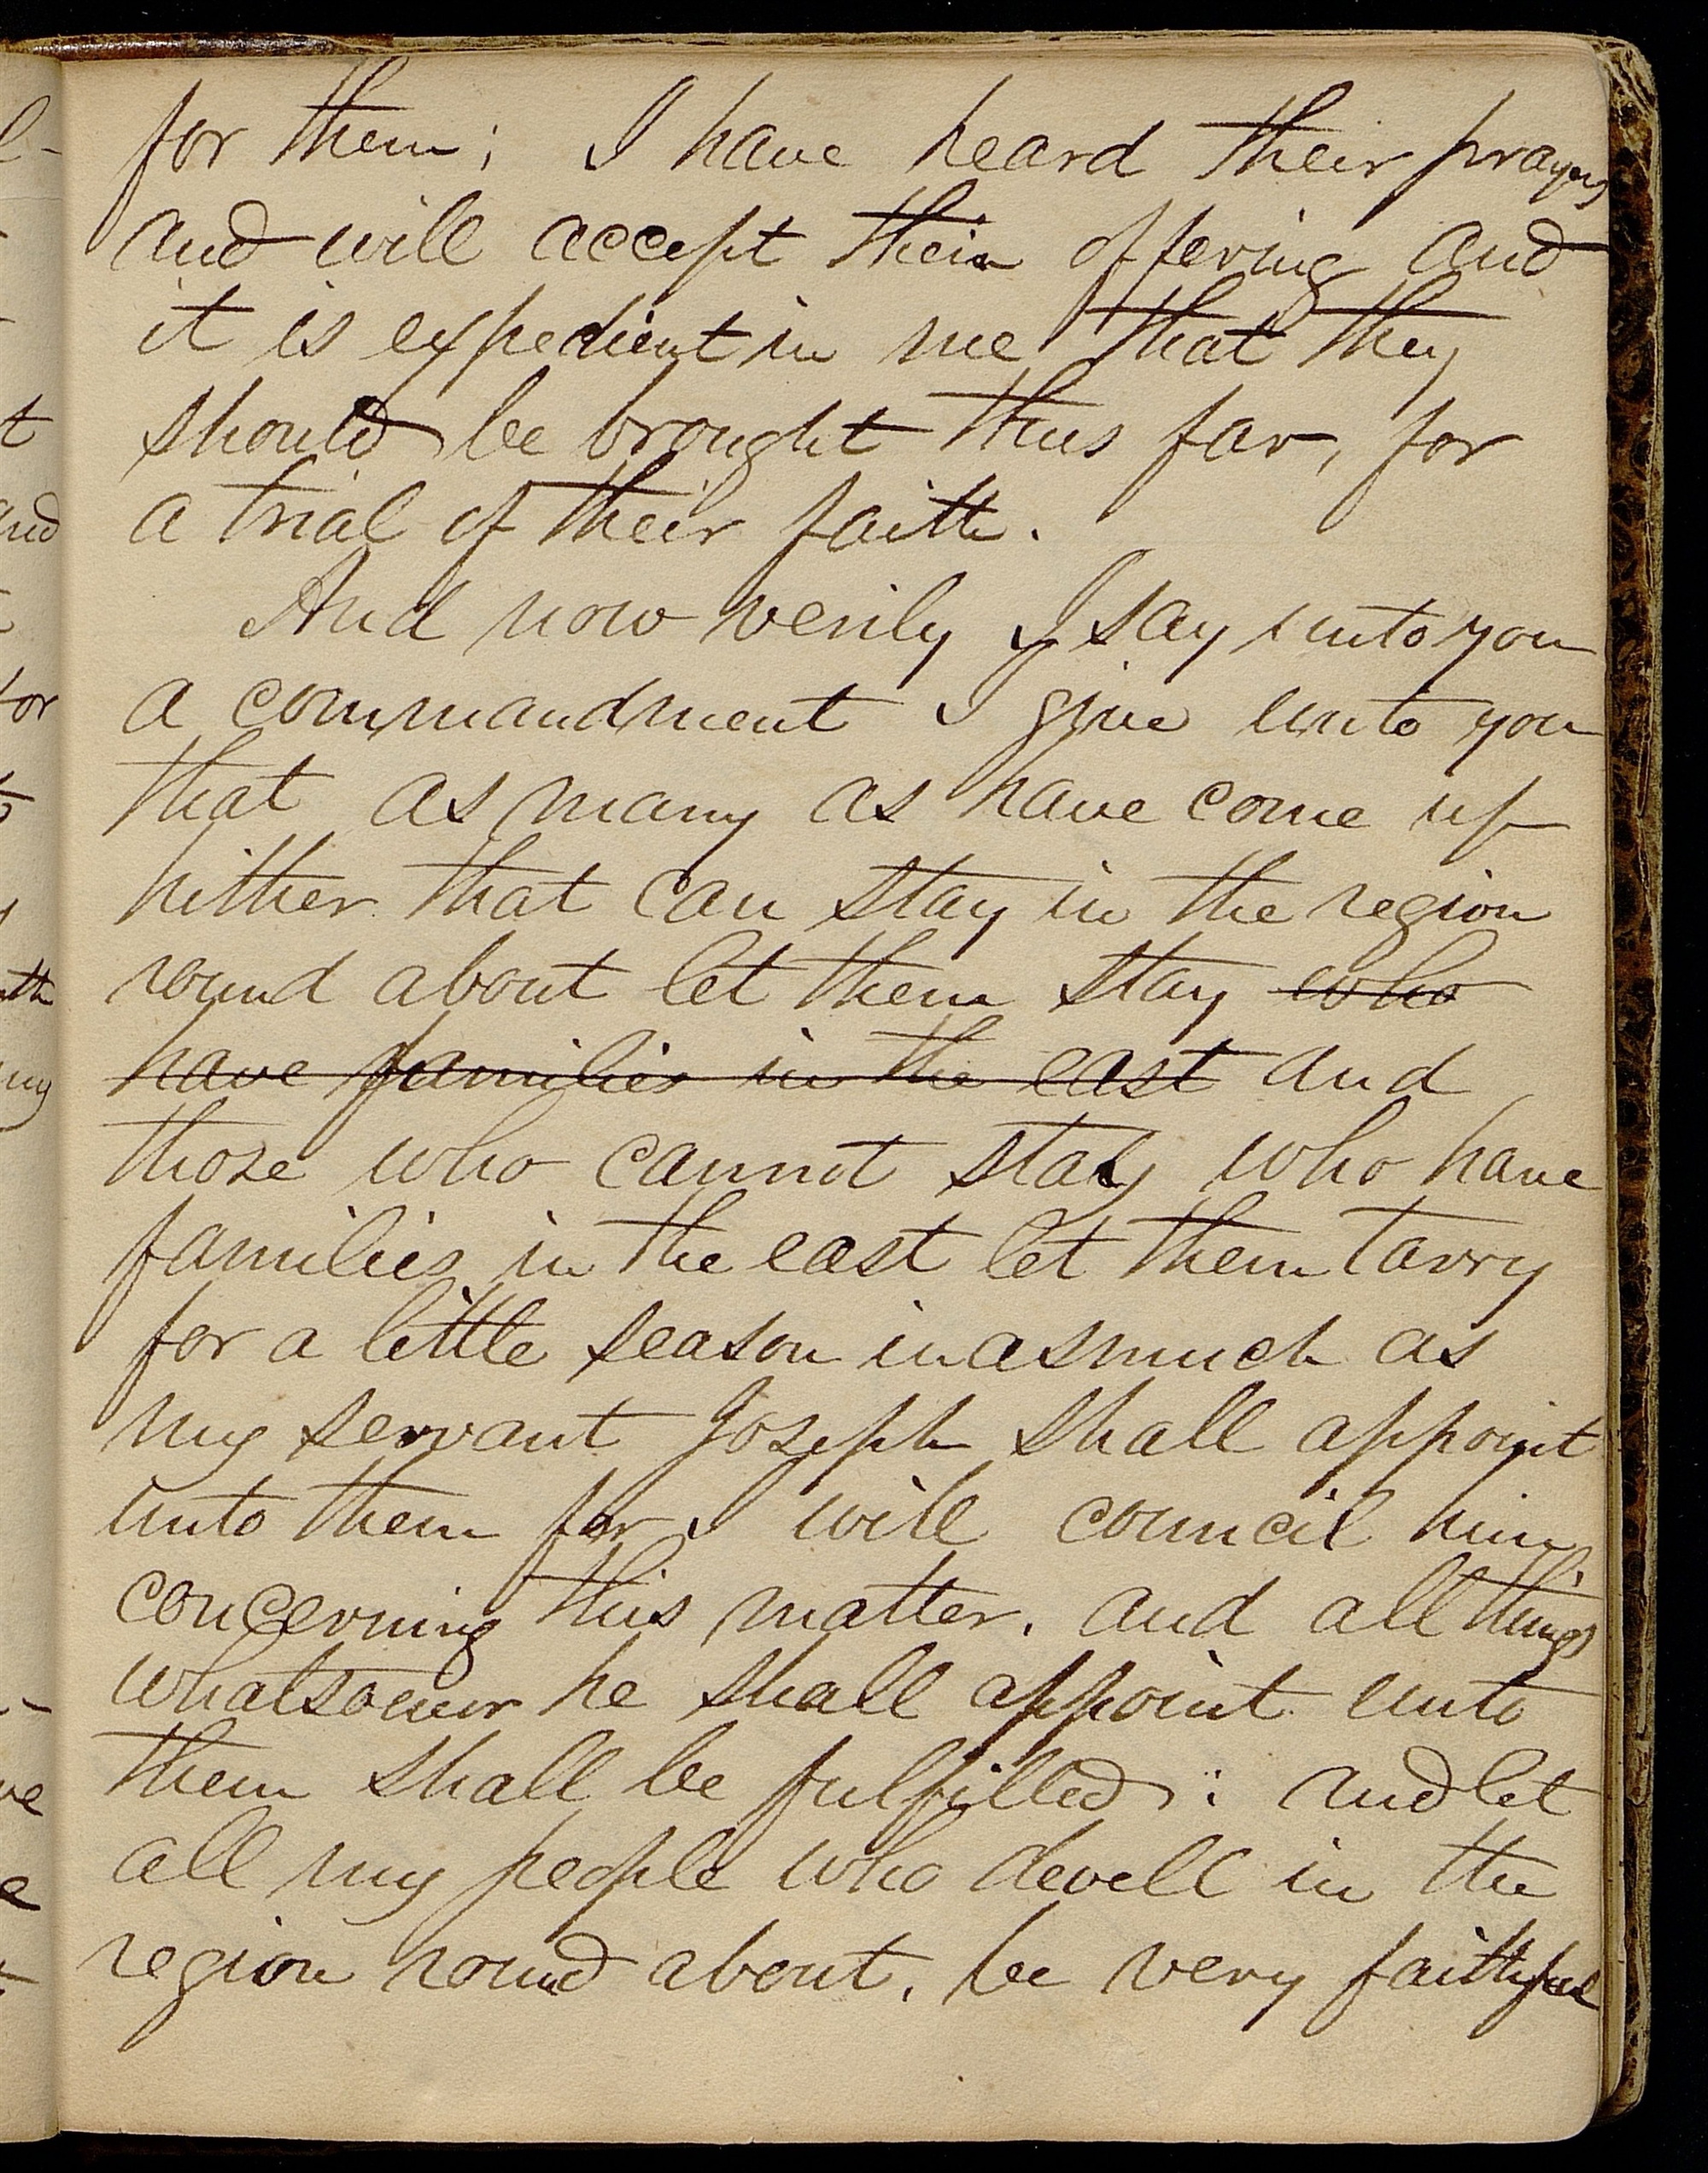 for them; I have heard their prayers
and will accept their offering and
it is expedient in me that they
should be brought thus far, for
a trial of their faith.
And now verily I say unto you
a commandment I give unto you
that as many as have come up
hither that can stay in the region
round about let them stay who
have families in the east and
those who cannot stay who have
families in the east let them tarry
for a little season inasmuch as
my servant Joseph shall appoint
unto them for I will council him
concerning this matter. and all things
whatsoever he shall appoint unto
them shall be fulfilled: and let
all my people who dwell in the
region round about, be very faithful